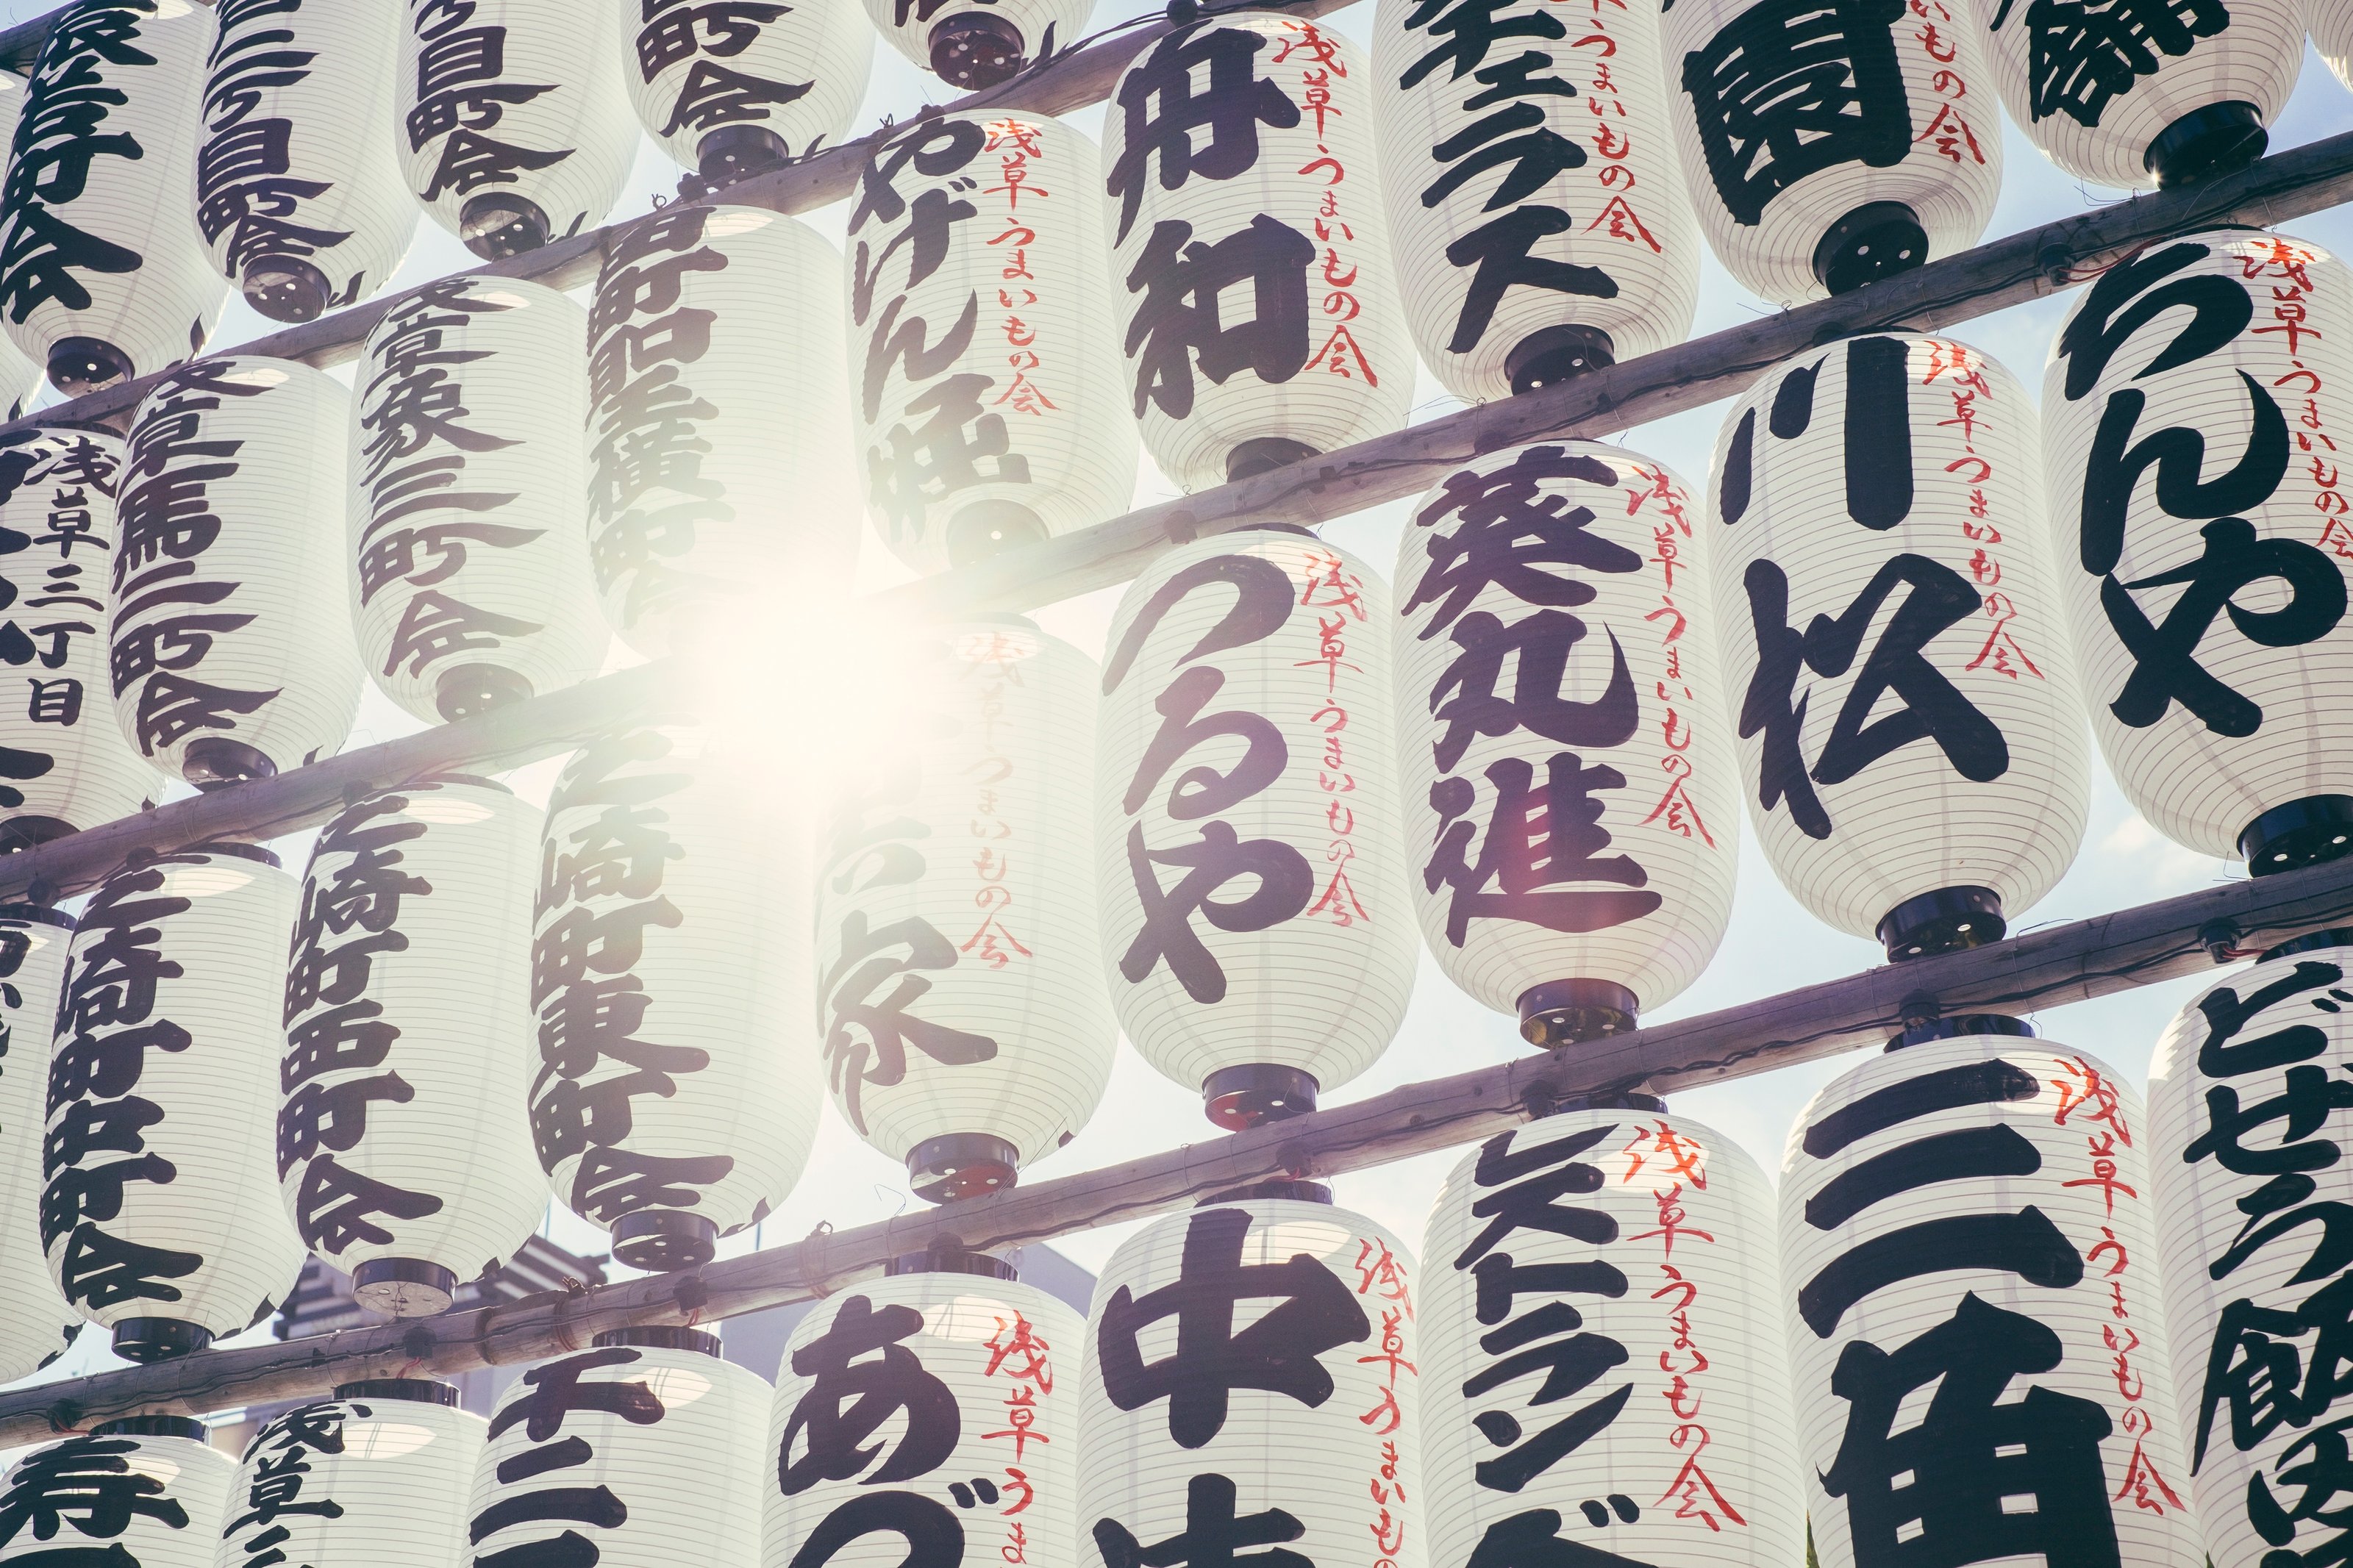 町会
二丁目町会
丁目町会
町会
やげん堀
浅草うまいもの会
舟和
浅草うまいもの会
ラス
うまいもの会
園
いもの会
浅草三丁目
浅草馬二町会
浅草象三町会
横町会
つるや
浅草うまいもの会
葵丸進
浅草うまいもの会
川松
浅草うまいもの会
ちんや
浅草うまいもの会
芝崎町中町会
芝崎町西町会
芝崎町東町会
家
浅草うまいもの会
寿
浅草
千
あづ
浅草うま
中
浅草うまいもの
ストラン
浅草うまいもの会
二
浅草うまいもの会
どぜう飯田